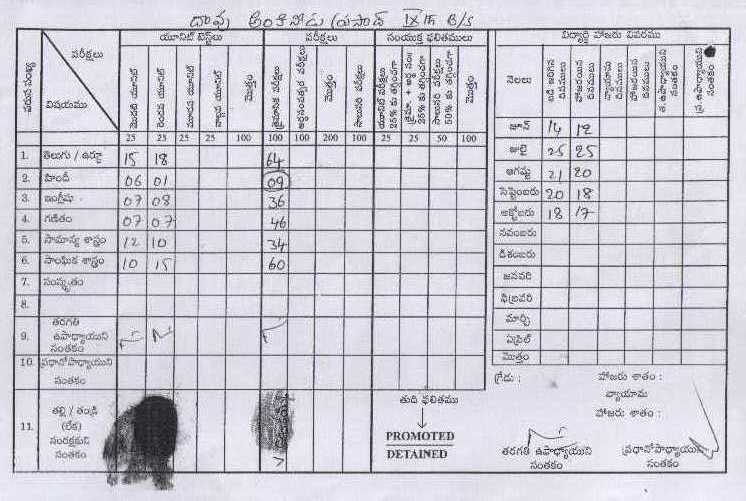 దావు అంకినోడు ప్రసాద్ IX th B/S
వరుస సంఖ్య పరీక్షలు విషయము యూనిట్ టెస్ట్‌లు పరీక్షలు సంయుక్త ఫలితములు
మొదటి యూనిట్ రెండవ యూనిట్ మూడవ యూనిట్ నాల్గవ యూనిట్ మొత్తం త్రైమాసిక పరీక్షలు అర్ధసంవత్సర పరీక్షలు మొత్తం సాలుసరి పరీక్షలు యూనిట్ పరీక్షలు 25% కు తగ్గించగా త్రైమా. + అర్ధ సం. 25% కు తగ్గించగా సాలుసరి పరీక్షలు 50% కు తగ్గించగా మొత్తం
25 25 25 25 100 100 100 200 100 25 25 50 100
1. తెలుగు / ఉర్దూ 15 18 64
2. హిందీ 06 01 09
3. ఇంగ్లీషు 07 08 36
4. గణితం 07 07 46
5. సామాన్య శాస్త్రం 12 10 34
6. సాంఘిక శాస్త్రం 10 15 60
7. సంస్కృతం
8.
9. తరగతి
ఉపాధ్యాయుని
సంతకం
10. ప్రధానోపాధ్యాయుని
సంతకం
11. తల్లి / తండ్రి
(లేక)
సంరక్షకుని
సంతకం
తుది ఫలితము
PROMOTED
DETAINED
విద్యార్థి హాజరు వివరము
నెలలు బడి జరిగిన దినములు హాజరయిన దినములు వ్యాయామ దినములు హాజరయిన దినములు త. ఉపాధ్యాయుని సంతకం ప్ర. ఉపాధ్యాయుని సంతకం
జూన్ 14 12
జులై 25 25
ఆగష్టు 21 20
సెప్టెంబరు 20 18
అక్టోబరు 18 17
నవంబరు
డిశంబరు
జనవరి
ఫిబ్రవరి
మార్చి
ఏప్రిల్
మొత్తం
గ్రేడు : హాజరు శాతం :
వ్యాయామ
హాజరు శాతం :
తరగతి ఉపాధ్యాయుని ప్రధానోపాధ్యాయుని
సంతకం సంతకం